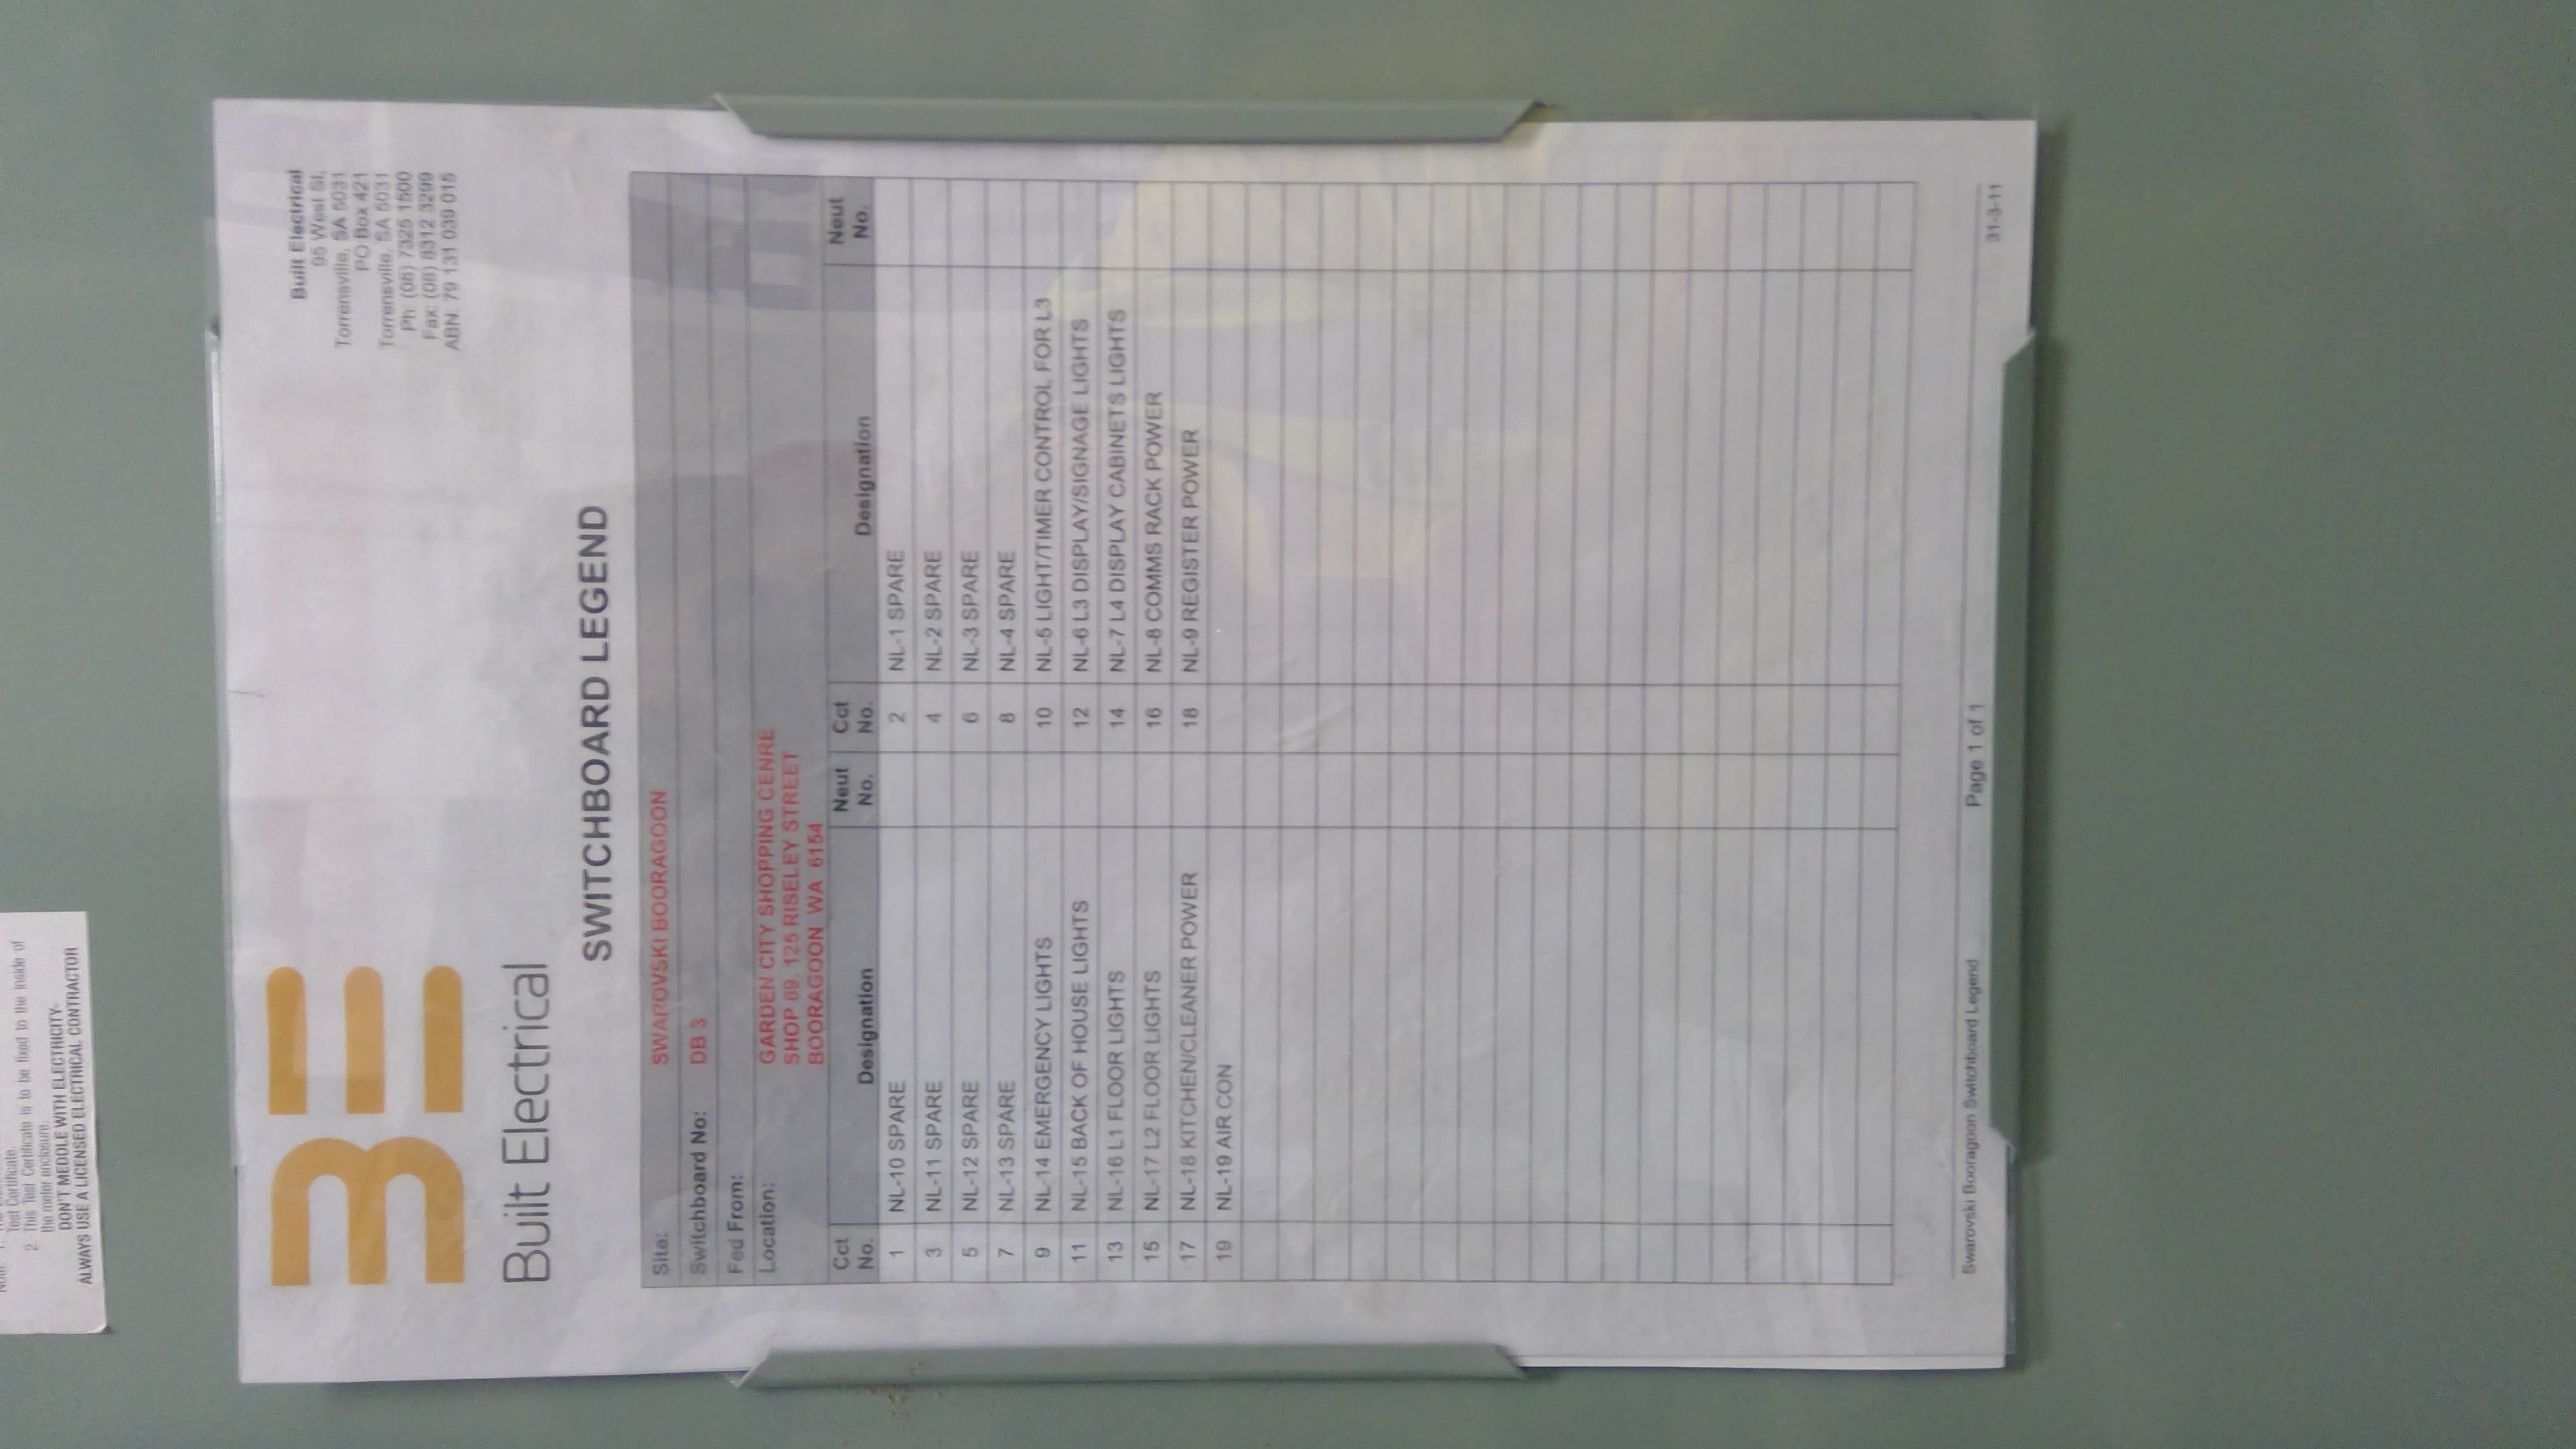 Built Electrical
95 West St,
Torrensville, SA 5031
PO Box 421
Torrensville, SA 5031
Ph: (08) 7325 1500
Fax: (08) 8312 3299
ABN: 79 131 039 015
BE
Built Electrical
SWITCHBOARD LEGEND
Site: SWAROVSKI BOORAGOON
Switchboard No: DB 3
Fed From:
Location: GARDEN CITY SHOPPING CENRE
SHOP 69, 125 RISELEY STREET
BOORAGOON WA 6154
Cct No. Designation Neut No. Cct No. Designation Neut No.
1 NL-10 SPARE 2 NL-1 SPARE
3 NL-11 SPARE 4 NL-2 SPARE
5 NL-12 SPARE 6 NL-3 SPARE
7 NL-13 SPARE 8 NL-4 SPARE
9 NL-14 EMERGENCY LIGHTS 10 NL-5 LIGHT/TIMER CONTROL FOR L3
11 NL-15 BACK OF HOUSE LIGHTS 12 NL-6 L3 DISPLAY/SIGNAGE LIGHTS
13 NL-16 L1 FLOOR LIGHTS 14 NL-7 L4 DISPLAY CABINETS LIGHTS
15 NL-17 L2 FLOOR LIGHTS 16 NL-8 COMMS RACK POWER
17 NL-18 KITCHEN/CLEANER POWER 18 NL-9 REGISTER POWER
19 NL-19 AIR CON
Swarovski Booragoon Switchboard Legend Page 1 of 1 31-3-11
Test Certificate.
2. This Test Certificate is to be fixed to the inside of
the meter enclosure.
DON'T MEDDLE WITH ELECTRICITY-
ALWAYS USE A LICENSED ELECTRICAL CONTRACTOR